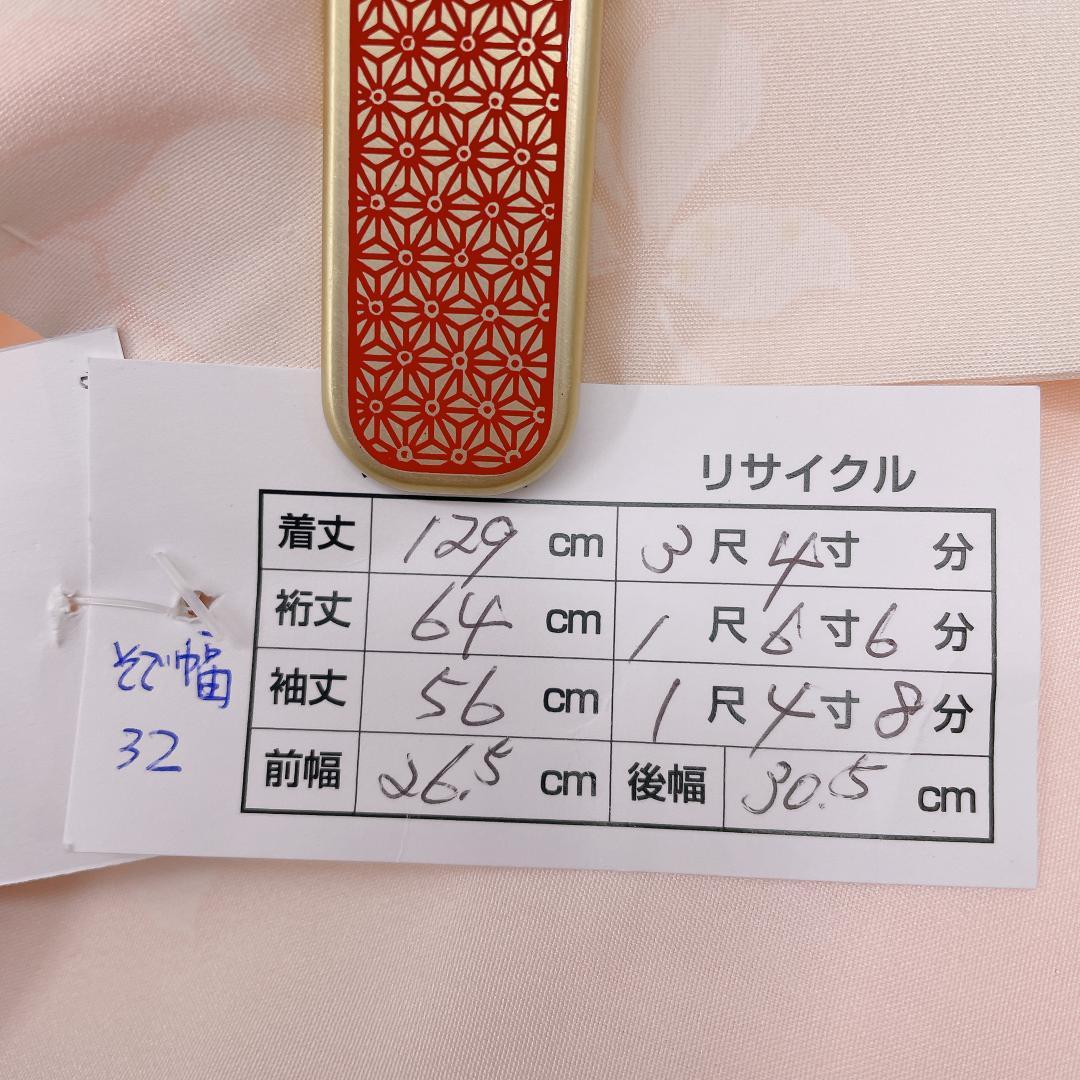 リサイクル
着丈 129 cm 3 尺 4 寸 分
裄丈 64 cm 1 尺 6 寸 6 分
袖丈 56 cm 1 尺 4 寸 8 分
前幅 26.5 cm 後幅 30.5 cm
そで幅
32